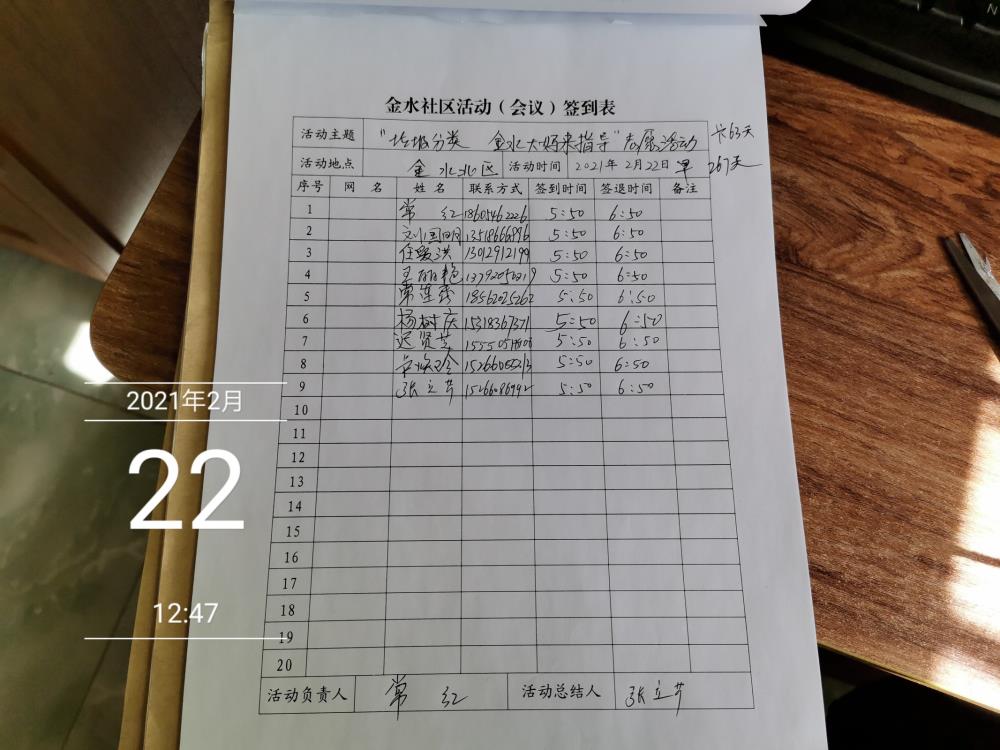 金水社区活动（会议）签到表
活动主题 “垃圾分类 金水大妈来指导”志愿活动 卡63天
活动地点 金水北区 活动时间 2021年2月22日 早 267天
序号 网 名 姓 名 联系方式 签到时间 签退时间 备注
1 常 红 18605462226 5:50 6:50
2 刘国明 13518666996 5:50 6:50
3 13012912199 5:50 6:50
4 王丽艳 5:50 6:50
5 18562025262 5:50 6:50
6 杨树庆 15318367371 5:50 6:50
7 迟贤芝 5:50 6:50
8 5:50 6:50
9 张立芹 15266086992 5:50 6:50
10
11
12
13
14
15
16
17
18
19
20
活动负责人 常 红 活动总结人 张立芹
2021年2月
22
12:47